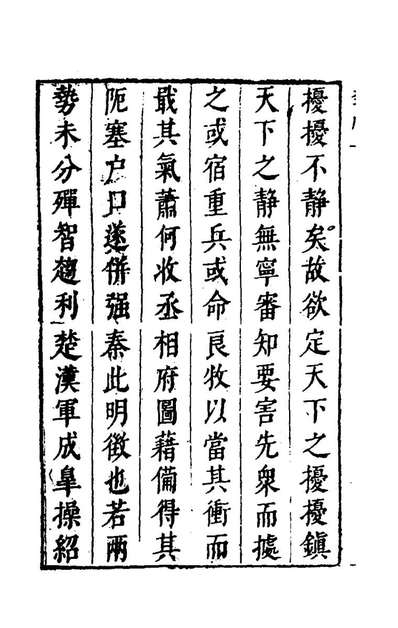 擾擾不靜矣故欲定天下之擾擾鎮
天下之靜無寧審知要害先衆而據
之或宿重兵或命良牧以當其衝而
戢其氣蕭何收丞相府圖藉備得其
阨塞户口遂併强秦此明徵也若兩
勢未分殫智趨利楚漢軍成臯操紹